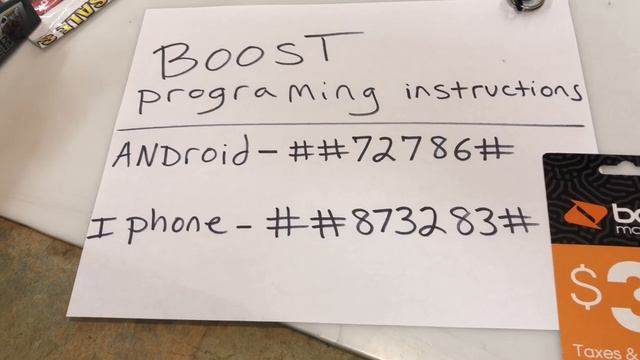 SALE
BOOST
programing instructions
ANDroid - ##72786#
Iphone - ##873283#
bo
mo
$3
Taxes &